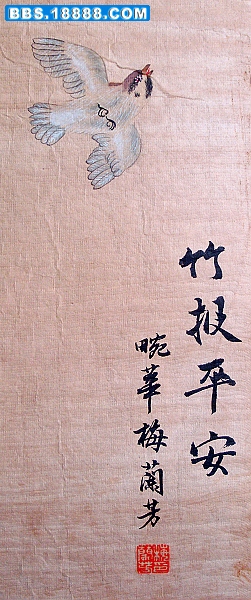 BBS.18888.COM
竹报平安
畹华梅兰芳